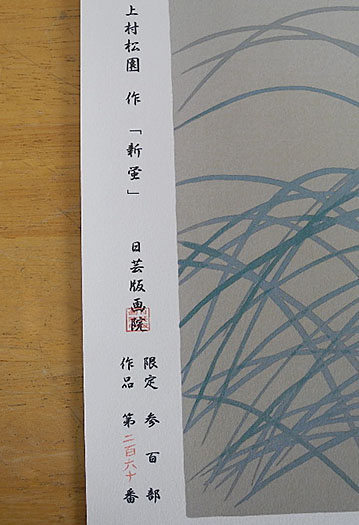 上村松園 作 「新蛍」
日芸版画院
限定 参百部
作品 第二百六十番